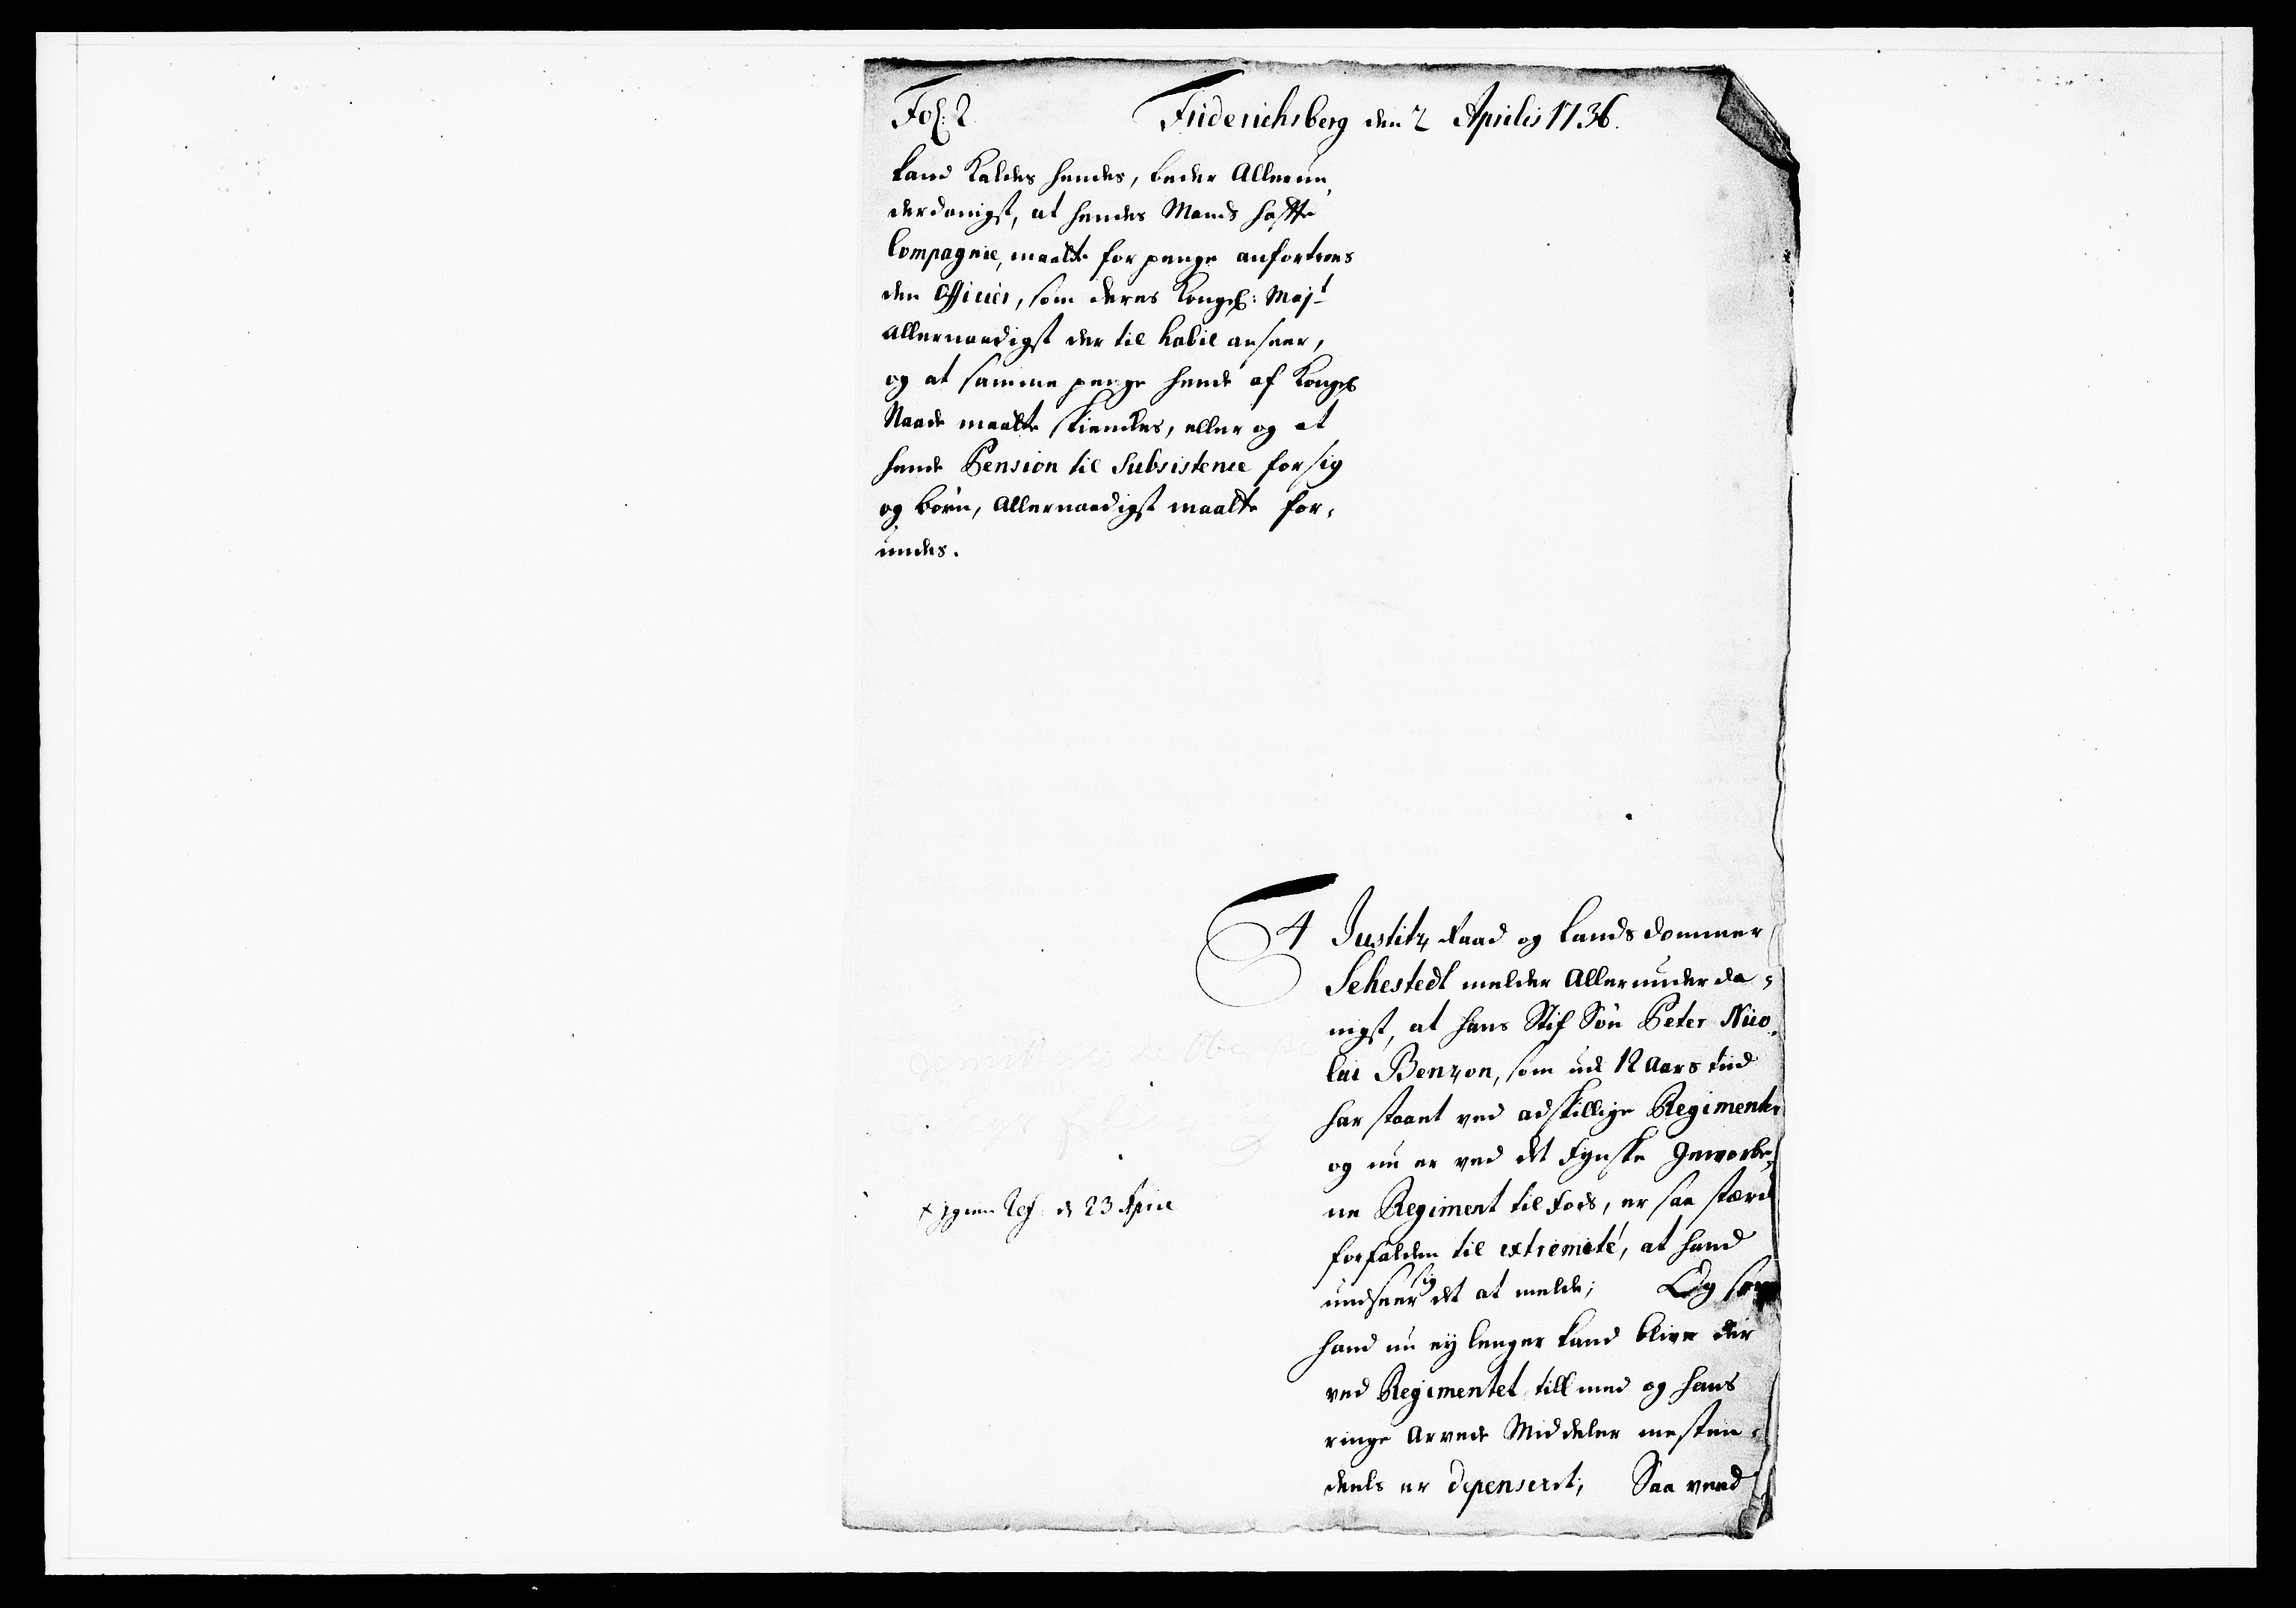 Fol: 2. Friderichsberg den 2 Aprilis 1736.
kand kaldes hendes, beder Allerun,
derdanigst, at hendes Mands hafte
Compagnie, maatte for penge anfortroes
den Officier, som deres Kongel: Majt
Allernaadigst der til habil anseer,
og at samme penge hende af Kongel
Naade maatte skienckes, eller og at
hende Pension til Subsistence for sig
og børn, Allernaadigst maatte for-
undes.
4 Justitz Raad og Landsdommer
Sehestedt melder Allerunderda-
nigst, at hans Stif Søn Peter Nico-
lai Benzon, som ud 12 Aars tiid
har staaet ved adskillige Regimenter
og nu er ved det Fynske Geworbe-
ne Regiment til Fods, er saa stærck
forfalden til extremité, at hand
undseer sig det at melde; Og som
hand nu ey lenger kand blive der
ved Regimentet tillmed og hans
ringe Arvede Middeler mesten-
deels er depenseret; Saa veed
+ igien Ref: d 23 April